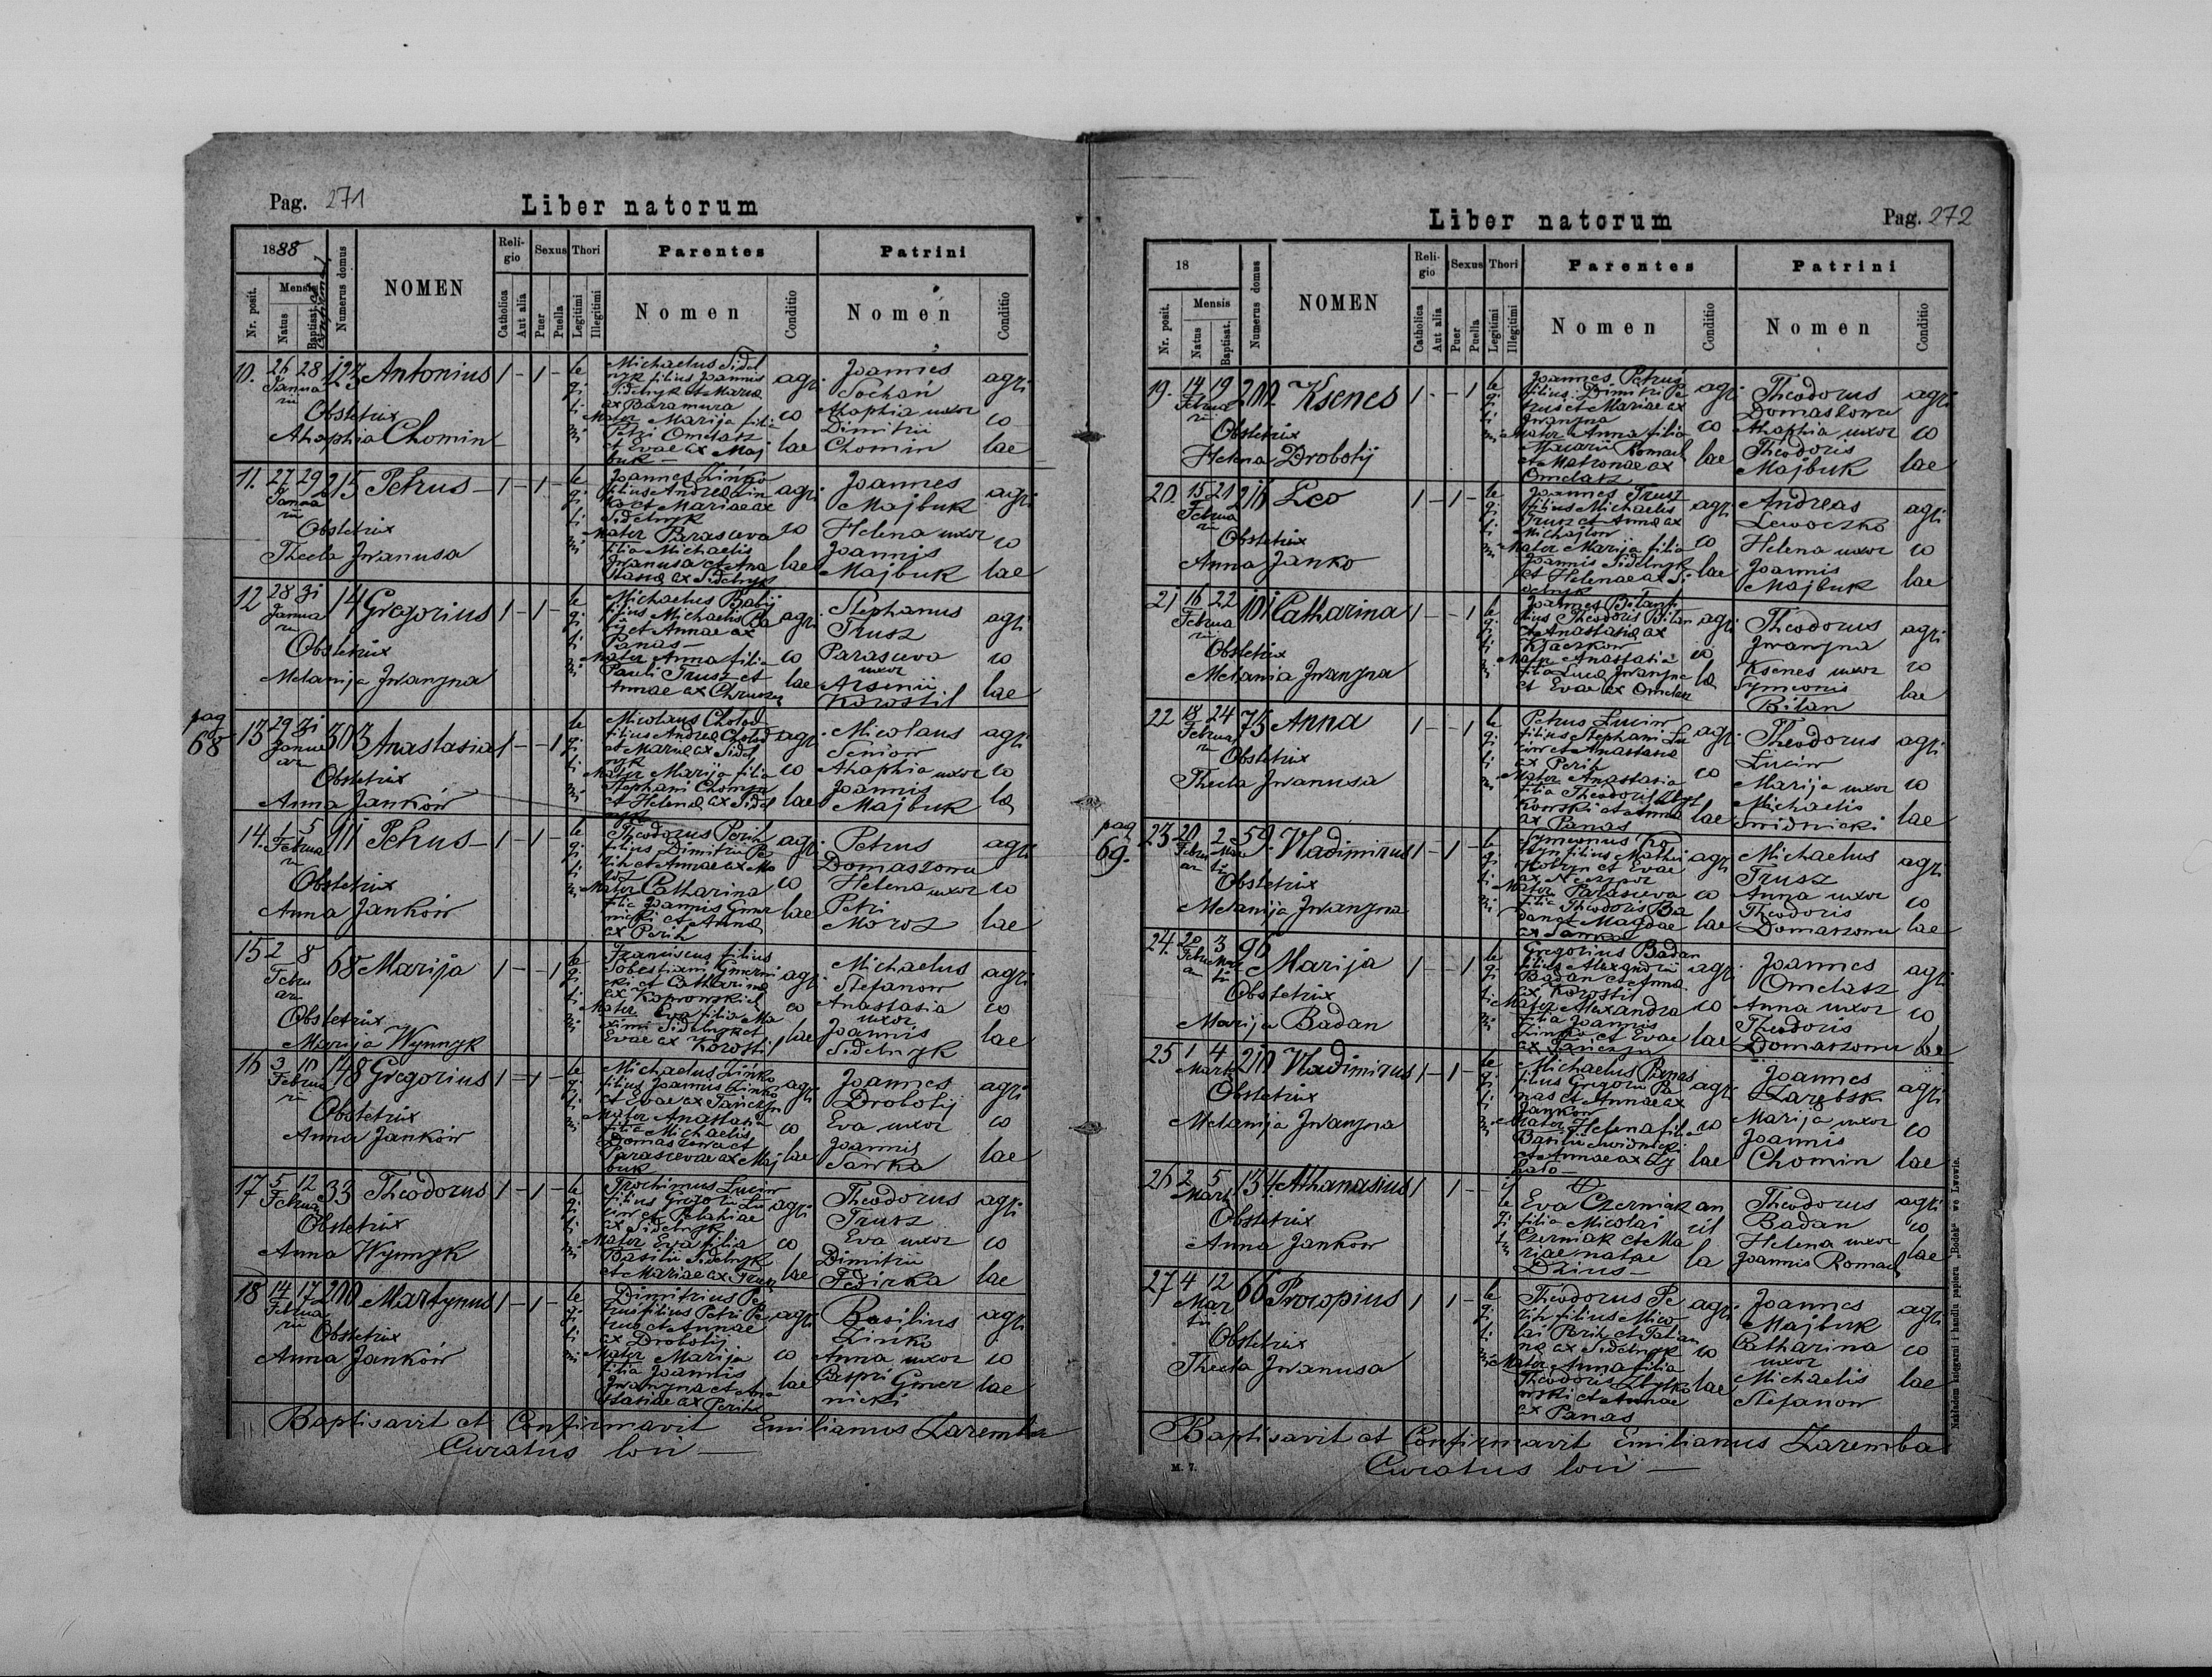 Pag. 271
Liber natorum
1888
Nr. posit.
Mensis
Natus
Baptisat. et confirmat.
Numerus domus
NOMEN
Religio
Catholica
Aut alia
Sexus
Puer
Puella
Thori
Legitimi
Illegitimi
Parentes
Nomen
Conditio
Patrini
Nomen
Conditio
10. 26 28 Januarii 123 Antonius 1 - 1 - legitimi
Obstetrix
Ahaphia Chomin
Michaelus Sidel
nyk filius Joannis
Sidelnyk et Mariae
ex Baramura
Mater Marija filia
Petri Omelasz
et Evae ex Maj
buk
agricolae
Joannes
Sochań
Ahaphia uxor
Dimitrii
Chomin
agricolae
11. 27 29 Januarii 215 Petrus 1 - 1 - legitimi
Obstetrix
Thecla Jwanusa
Joannes Zinko
filius Andreae Zin
ko et Mariae ex
Sidelnyk
Mater Parasceva
filia Michaelis
Jwanusa et Ana
stasiae ex Sidelnyk
agricolae
Joannes
Majbuk
Helena uxor
Joannis
Majbuk
agricolae
12 28 31 Januarii 14 Gregorius 1 - 1 - legitimi
Obstetrix
Melanija Jwanyna
Michaelus Babij
filius Michaelis Ba
bij et Annae ex
Panas
Mater Anna filia
Pauli Trusz et
Annae ex
agricolae
Stephanus
Trusz
Parasceva
uxor
Arsenii
Korostil
agricolae
pag
68
13 29 31 Januar 303 Anastasia 1 - - 1 legitimi
Obstetrix
Anna Janków
Nicolaus Cholod
filius Andreae Cholod
et Mariae ex Sidel
nyk
Mater Marija filia
Stephani Chomyn
et Helenae ex Sidel
nyk
agricolae
Nicolaus
Seniow
Ahaphia uxor
Joannis
Majbuk
agricolae
14. 1 5 Februarii 911 Petrus 1 - 1 - legitimi
Obstetrix
Anna Janków
Theodorus Perih
filius Dimitrii Pe
rih et Annae ex Mo
roz
Mater Catharina
filia Joannis Gmer
nicki et Annae
ex Perih
agricolae
Petrus
Domaszowu
Helena uxor
Petri
Moroz
agricolae
15 2 8 Februar 68 Marija 1 - - 1 legitimi
Obstetrix
Marija Wynnyk
Franciscus filius
Sobestiani Gmerni
cki et Catharinae
ex Koprowskich
Mater Eva filia Ma
ximi Sidelnyk et
Evae ex Korostil
agricolae
Michaelus
Stefanow
Anastasia
uxor
Joannis
Sidelnyk
agricolae
16 3 10 Februarii 148 Gregorius 1 - 1 - legitimi
Obstetrix
Anna Janków
Michaelus Zinko
filius Joannis Zinko
et Evae ex Tanczyn
Mater Anastasia
filia Michaelis
Domaszowu et
Parascevae ex Maj
buk
agricolae
Joannes
Drobotij
Eva uxor
Joannis
Sawka
agricolae
17 5 12 Februar 33 Theodorus 1 - 1 - legitimi
Obstetrix
Anna Wynnyk
Trochimus Luciw
filius Gregorii Lu
ciw et Pelahiae
ex Sidelnyk
Mater Eva filia
Basilii Sidelnyk
et Mariae ex Trusz
agricolae
Theodorus
Trusz
Eva uxor
Dimitrii
Fedirka
agricolae
18 14 17 Februarii 200 Martynus 1 - 1 - legitimi
Obstetrix
Anna Janków
Dimitrius Pe
trus filius Petri Pe
trus et Annae
ex Drobotij
Mater Marija
filia Joannis
Jwanyna et Ana
stasiae ex Perih
agricolae
Basilius
Zinko
Anna uxor
Caspri Gmer
nicki
agricolae
Baptisavit et Confirmavit Emilianus Zaremba
Curatus loci
Liber natorum
Pag. 272
18
Nr. posit.
Mensis
Natus
Baptisat.
Numerus domus
NOMEN
Religio
Catholica
Aut alia
Sexus
Puer
Puella
Thori
Legitimi
Illegitimi
Parentes
Nomen
Conditio
Patrini
Nomen
Conditio
19. 14 19 Februarii 200 Ksenes 1 - - 1 legitimi
Obstetrix
Helena Drobotij
Joannes Petrus
filius Dimitri Pe
trus et Mariae ex
Jwanyna
Mater Anna filia
Macarii Romach
et Matronae ex
Omelasz
agricolae
Theodorus
Domaszowu
Ahaphia uxor
Theodoris
Majbuk
agricolae
20. 15 21 Februarii 216 Leo 1 - 1 - legitimi
Obstetrix
Anna Janko
Joannes Trusz
filius Michaelis
Trusz et Annae ex
Michajlow
Mater Marija filia
Joannis Sidelnyk
et Helenae ex Si
delnyk
agricolae
Andreas
Lewoczko
Helena uxor
Joannis
Majbuk
agricolae
21 16 22 Februarii 101 Catharina 1 - - 1 legitimi
Obstetrix
Melania Jwanyna
Joannes Bilan fi
lius Theodoris Bilan
et Anastasiae ex
Klaczkow
Mater Anastasia
filia Lucae Jwanyna
et Evae ex Omelasz
agricolae
Theodorus
Jwanyna
Ksenes uxor
Symeonis
Bilan
agricolae
22 18 24 Februarii 75 Anna 1 - - 1 legitimi
Obstetrix
Thecla Jwanusa
Petrus Luciw
filius Stephani Lu
ciw et Anastasiae
ex Perih
Mater Anastasia
filia Theodoris Zbyt
kowski et Annae
ex Panas
agricolae
Theodorus
Luciw
Marija uxor
Michaelis
Swidnicki
agricolae
pag
69.
23 20 Februar 2 Martii 59. Vladimirus 1 - 1 - legitimi
Obstetrix
Melanija Jwanyna
Symeonus Ko
tryn filius Mathei
Kotryn et Evae
ex Neczypor
Mater Parasceva
filia Theodoris Ba
dan et Magdae
ex Sawka
agricolae
Michaelus
Trusz
Anna uxor
Theodoris
Domaszowu
agricolae
24. 20 Februar 3 Martii 96 Marija 1 - - 1 legitimi
Obstetrix
Marija Badan
Gregorius Badan
filius Alexandrii
Badan et Annae
ex Korostil
Mater Alexandra
filia Joannis
Zinko et Evae
ex Tanczyn
agricolae
Joannes
Omelasz
Anna uxor
Theodoris
Domaszowu
agricolae
25 1 4 Marti 210 Vladimirus 1 - 1 - legitimi
Obstetrix
Melanija Jwanyna
Michaelus Panas
filius Gregorii Pa
nas et Annae ex
Jankow
Mater Helena filia
Basilii Swidnicki
et Annae ex Ly
palo
agricolae
Joannes
Zarebski
Marija uxor
Joannis
Chomin
agricolae
26 2 5 Marti 134. Athanasius 1 1 - illegitim
Obstetrix
Anna Jankow
Eva Czerniak
filia Nicolai
Czerniak et Ma
riae natae
Dzius
ancilla
Theodorus
Badan
Helena uxor
Joannis Romach
agricolae
27 4 12 Martii 66 Procopius 1 1 - legitimi
Obstetrix
Thecla Jwanusa
Theodorus Pe
rih filius Nico
lai Perih et Tatian
ae ex Sidelnyk
Mater Anna filia
Theodoris Zbytko
wski et Annae
ex Panas
agricolae
Joannes
Majbuk
Catharina
uxor
Michaelis
Stefanow
agricolae
Baptisavit et Confirmavit Emilianus Zaremba
Curatus loci
M. 7.
Nakładem księgarni i handlu papieru „Bodek" we Lwowie.